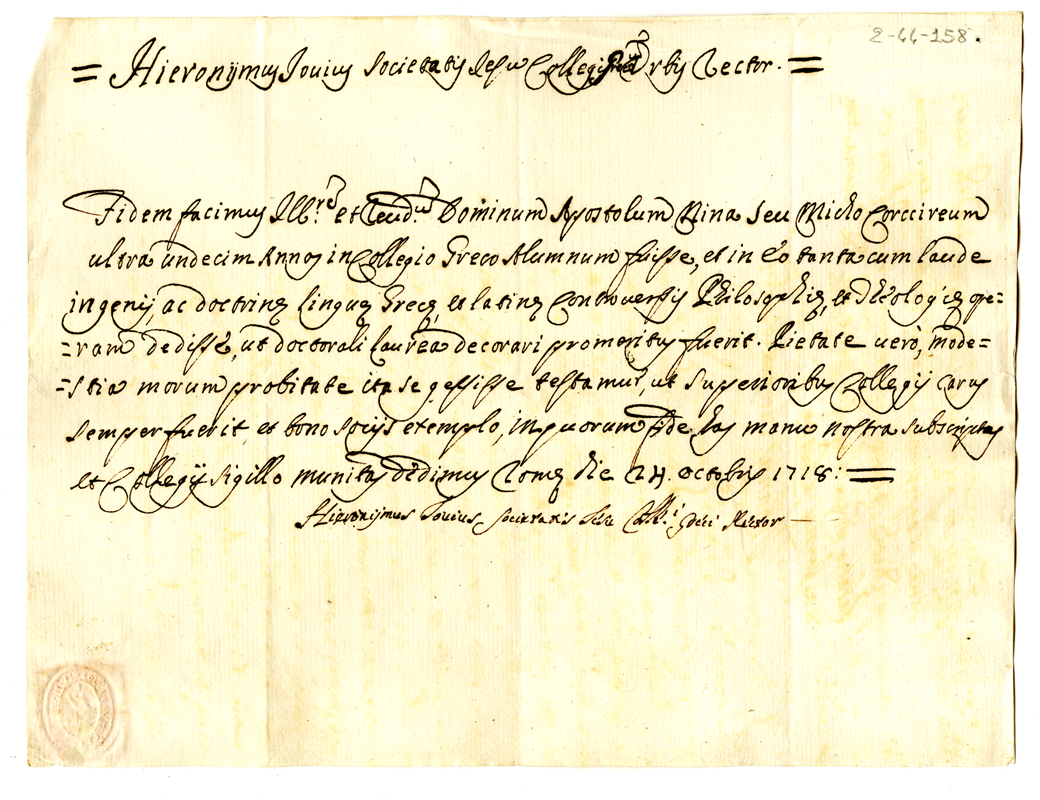 2-44-158.
= Hieronymus Jovius Societatis Jesu Collegij Urbis Rector. =
Fidem facimus Ill.re et Reud.m Dominum Apostolum Mina seu Micho Corcireum
ultra undecim Annos in Collegio Greco Alumnum fuisse, et in eo tanta cum laude
ingenij, ac doctrinę linguę Gręcę, et latinę controversijs Philosophię, et Theologię ope=
=ram dedisse, ut doctorali laurea decorari promeritus fuerit. Pietate verò, mode=
=stia morum probitate ita se gessisse testamur, ut Superioribus Collegij carus
semper fuerit, et bono socijs exemplo, in quorum fide has manu nostra subscriptas
et Collegij sigillo munitas dedimus Romę die 24. Octobris 1718: =
Hieronymus Jovius Societatis Jesu Coll.i Rector —